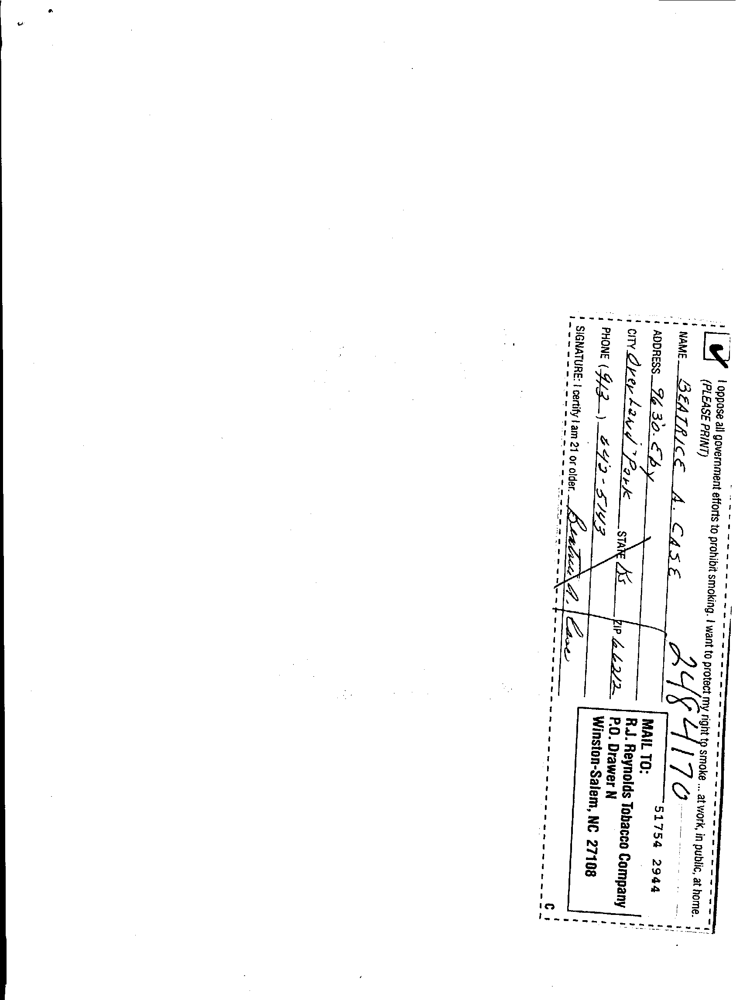 I oppose all government efforts to prohibit smoking. I want to protect my right to smoke ... at work, in public, at home.
(PLEASE PRINT)
NAME BEATRICE A. CASE 2484170
ADDRESS 9630. Eby
CITY Overland Park STATE Ks ZIP 66212
PHONE (913) 642-5143
SIGNATURE: I certify I am 21 or older. Beatrice A. Case
51754 2944
MAIL TO:
R.J. Reynolds Tobacco Company
P.O. Drawer N
Winston-Salem, NC 27108
C